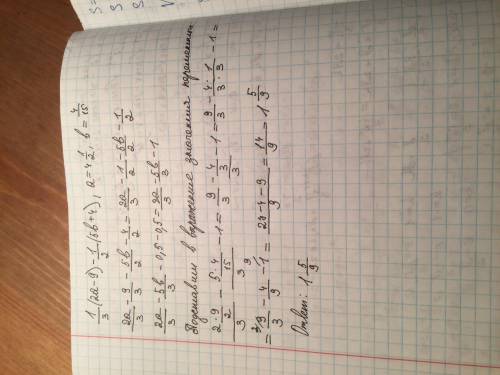 1/3 (2a-9) - 1/2 (5b+4), a=4 1/2, b=4/15
2a/3 - 9/3 - 5b/2 - 4/2 = 2a/3 - 1/2 - 5b/2 - 1/2
2a/3 - 5b/3 - 0,5 - 0,5 = 2a/3 - 5b/3 - 1
Подставим в выражение значения переменных
= 9/3 - 4/9 - 1 = (27-4-9)/9 = 14/9 = 1 5/9
Ответ: 1 5/9